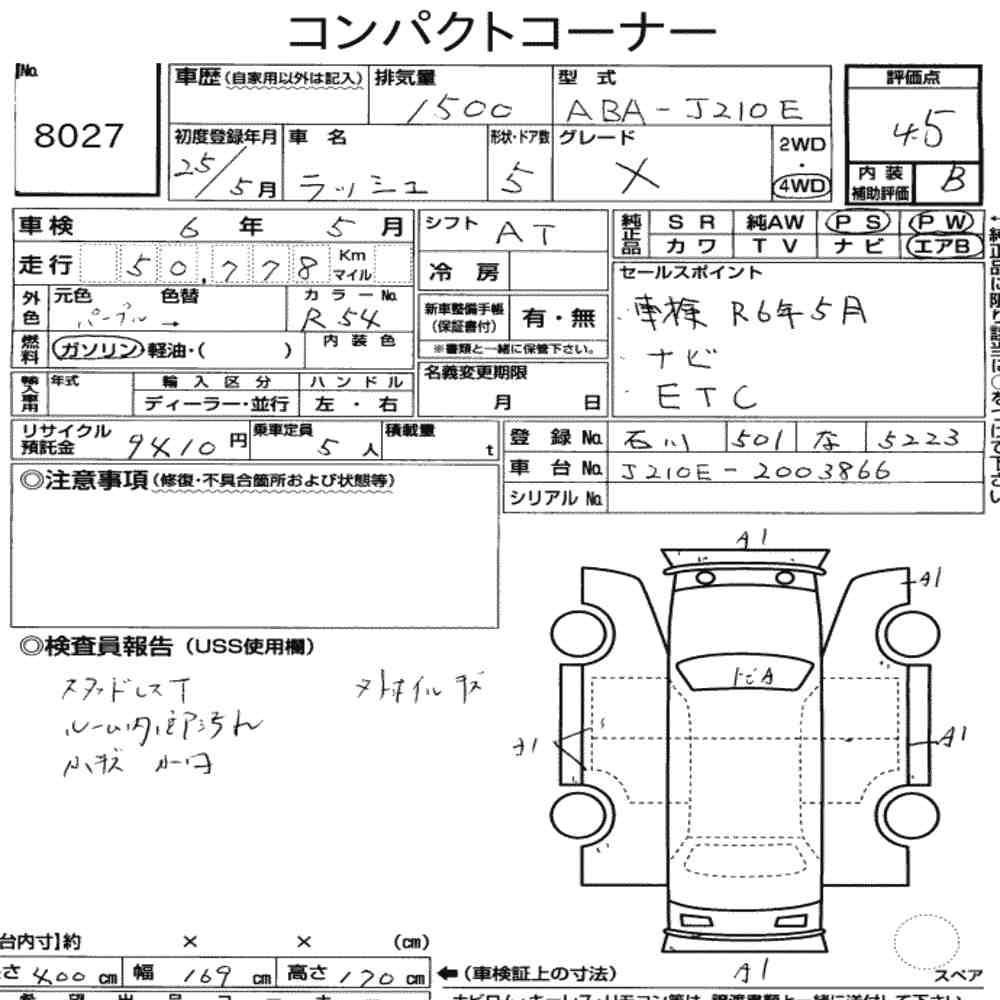 コンパクトコーナー
No. 8027
車歴(自家用以外は記入) 排気量 1500 型式 ABA-J210E
初度登録年月 25/5月 車名 ラッシュ 形状・ドア数 5 グレード X 2WD・4WD
評価点 4.5
内装補助評価 B
車検 6年 5月
走行 50,778 Km マイル
外色 元色 パープル 色替 → カラーNo. R54
燃料 ガソリン・軽油・( ) 内装色
輸入車用 年式 輸入区分 ディーラー・並行 ハンドル 左・右
リサイクル預託金 9410円 乗車定員 5人 積載量 t
シフト AT
冷房
新車整備手帳(保証書付) 有・無
※書類と一緒に保管下さい。
名義変更期限 月 日
純正品 SR 純AW PS PW
カワ TV ナビ エアB
セールスポイント
・車検 R6年5月
・ナビ
・ETC
登録No. 石川 501 な 5223
車台No. J210E-2003866
シリアルNo.
◎注意事項(修復・不具合箇所および状態等)
◎検査員報告(USS使用欄)
スタッドレスT
ルーム内部汚れ
小キズ 小凹
A1
A1
トビA
A1
A1
A1
台内寸】約 × × (cm)
さ 400 cm 幅 169 cm 高さ 170 cm
←(車検証上の寸法)
スペア